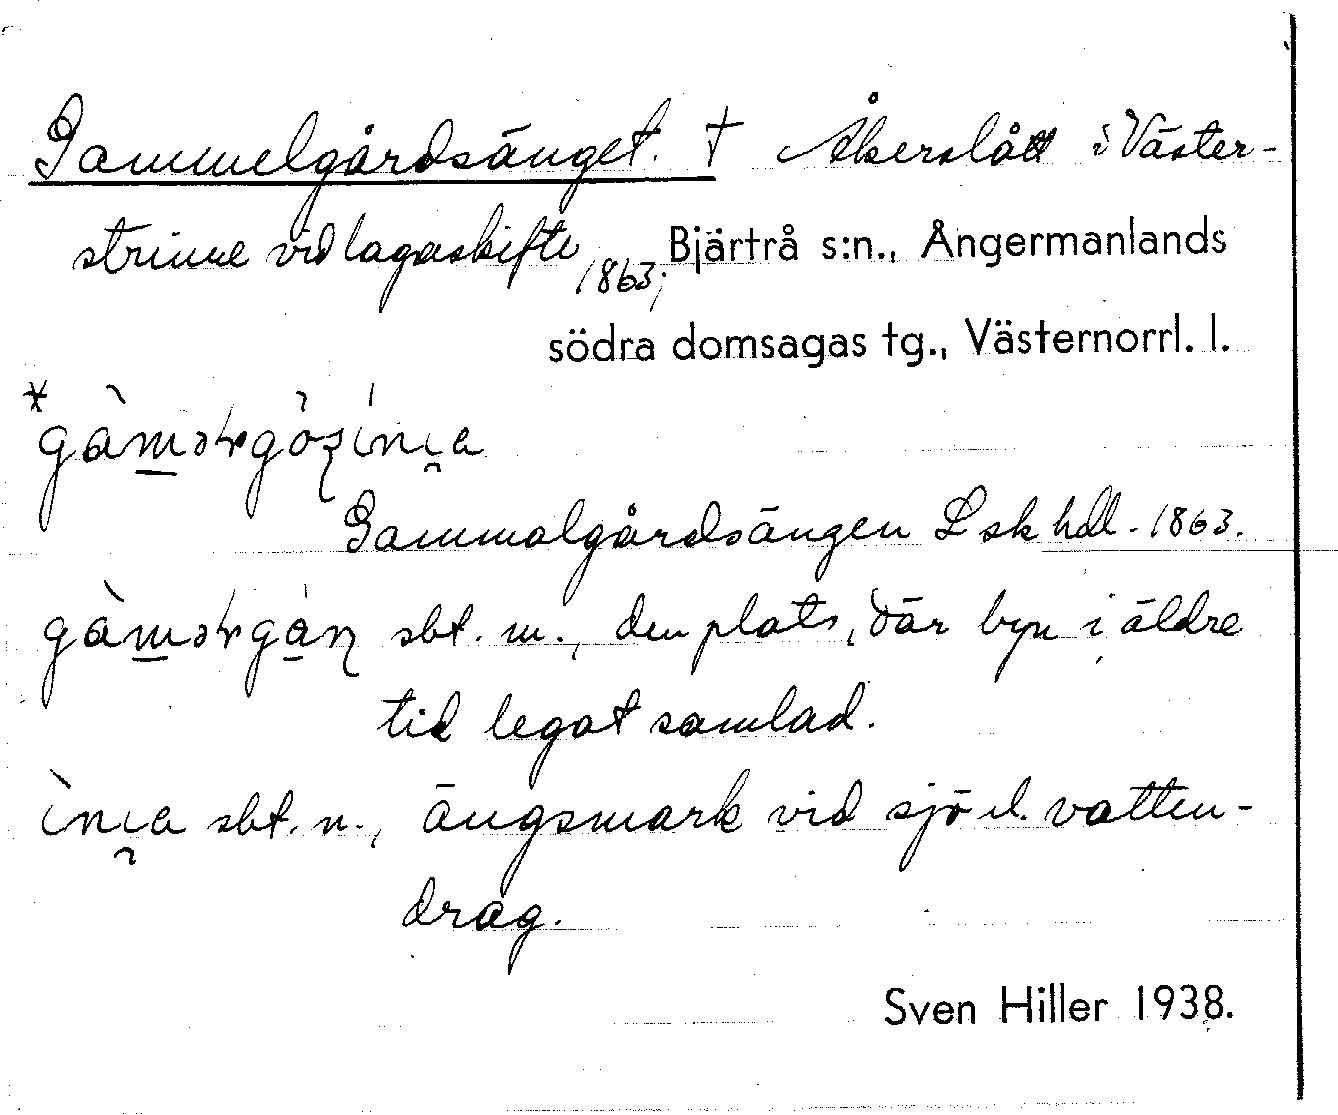 Gammelgårdsänget. † Åkerslått i Väster-
strinne vid lagaskifte 1863; Bjärtrå s:n., Ångermanlands
södra domsagas tg., Västernorrl. l.
Gammalgårdsängen L sk hdl. 1863.
sbt. m., den plats, där byn i äldre
tid legat samlad.
sbt. n., ängsmark vid sjö el. vatten-
drag.
Sven Hiller 1938.